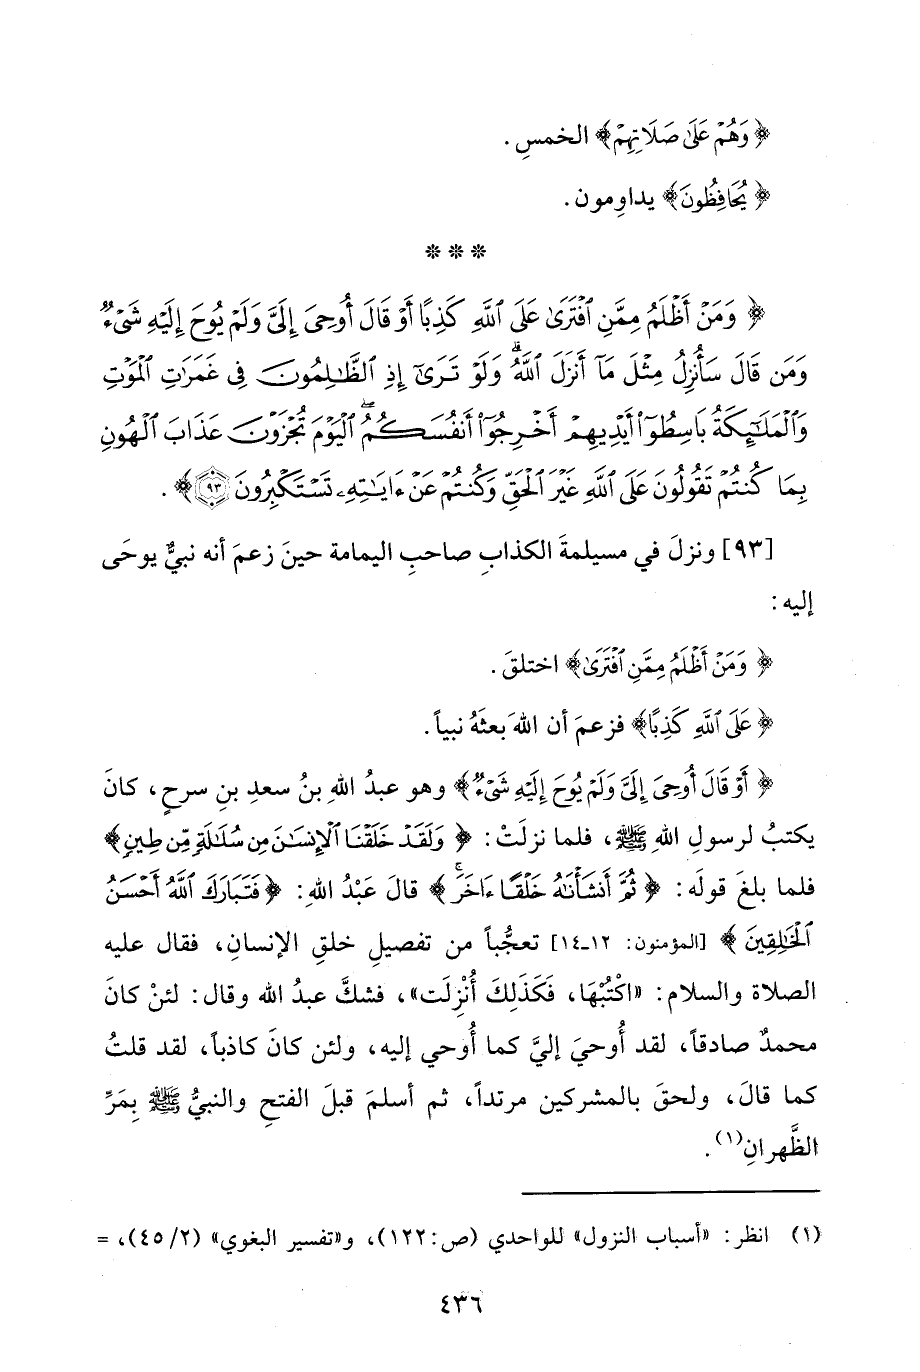 ﴿وَهُمْ عَلَىٰ صَلَاتِهِمْ﴾ الخمسِ.
﴿يُحَافِظُونَ﴾ يداوِمون.
***
﴿وَمَنْ أَظْلَمُ مِمَّنِ ٱفْتَرَىٰ عَلَى ٱللَّهِ كَذِبًا أَوْ قَالَ أُوحِىَ إِلَىَّ وَلَمْ يُوحَ إِلَيْهِ شَىْءٌ
وَمَن قَالَ سَأُنزِلُ مِثْلَ مَآ أَنزَلَ ٱللَّهُ ۗ وَلَوْ تَرَىٰٓ إِذِ ٱلظَّـٰلِمُونَ فِى غَمَرَٰتِ ٱلْمَوْتِ
وَٱلْمَلَـٰٓئِكَةُ بَاسِطُوٓا۟ أَيْدِيهِمْ أَخْرِجُوٓا۟ أَنفُسَكُمُ ۖ ٱلْيَوْمَ تُجْزَوْنَ عَذَابَ ٱلْهُونِ
بِمَا كُنتُمْ تَقُولُونَ عَلَى ٱللَّهِ غَيْرَ ٱلْحَقِّ وَكُنتُمْ عَنْ ءَايَـٰتِهِۦ تَسْتَكْبِرُونَ ٩٣﴾.
[٩٣] ونزلَ في مسيلمةَ الكذابِ صاحبِ اليمامة حينَ زعمَ أنه نبيٌّ يوحَى
إليه:
﴿وَمَنْ أَظْلَمُ مِمَّنِ ٱفْتَرَىٰ﴾ اختلقَ.
﴿عَلَى ٱللَّهِ كَذِبًا﴾ فزعمَ أن اللهَ بعثَهُ نبياً.
﴿أَوْ قَالَ أُوحِىَ إِلَىَّ وَلَمْ يُوحَ إِلَيْهِ شَىْءٌ﴾ وهو عبدُ اللهِ بنُ سعدِ بنِ سرحٍ، كانَ
يكتبُ لرسولِ اللهِ ﷺ، فلما نزلَتْ: ﴿وَلَقَدْ خَلَقْنَا ٱلْإِنسَـٰنَ مِن سُلَـٰلَةٍ مِّن طِينٍ﴾
فلما بلغَ قولَه: ﴿ثُمَّ أَنشَأْنَـٰهُ خَلْقًا ءَاخَرَ ۚ﴾ قالَ عَبْدُ اللهِ: ﴿فَتَبَارَكَ ٱللَّهُ أَحْسَنُ
ٱلْخَـٰلِقِينَ﴾ [المؤمنون: ١٢ـ١٤] تعجُّباً من تفصيلِ خلقِ الإنسانِ، فقال عليه
الصلاة والسلام: «اكْتُبْهَا، فَكَذَلِكَ أُنْزِلَت»، فشكَّ عبدُ الله وقال: لئنْ كانَ
محمدٌ صادقاً، لقد أُوحيَ إليَّ كما أُوحي إليه، ولئن كانَ كاذباً، لقد قلتُ
كما قالَ، ولحقَ بالمشركين مرتداً، ثم أسلمَ قبلَ الفتحِ والنبيُّ ﷺ بِمَرِّ
الظَّهرانِ(١).
(١) انظر: «أسباب النزول» للواحدي (ص: ١٢٢)، و«تفسير البغوي» (٢/ ٤٥)، =
٤٣٦